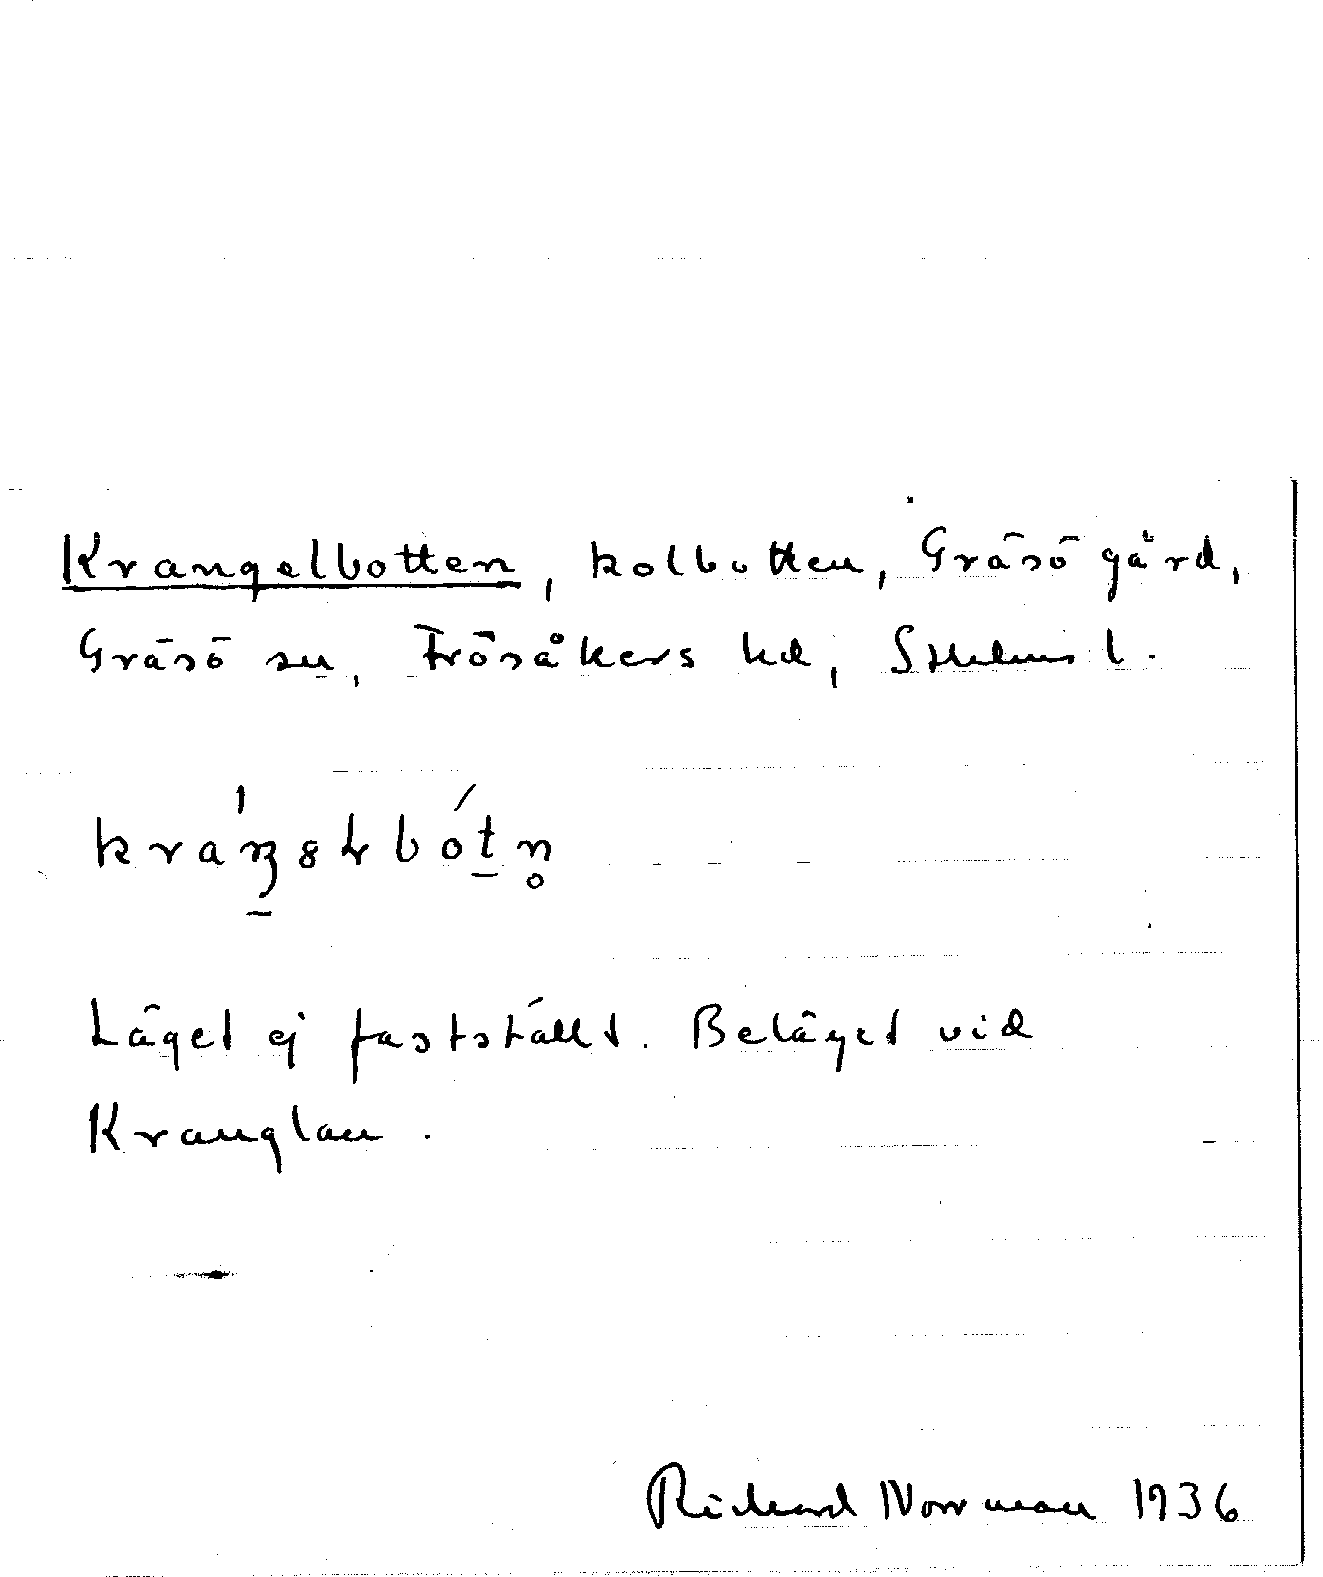 Krangelbotten, kolbotten, Gräsö gård,
Gräsö sn, Frösåkers hd, Sthlms l.
Läget ej fastställt. Beläget vid
Kranglan.
Richard Norrman 1936